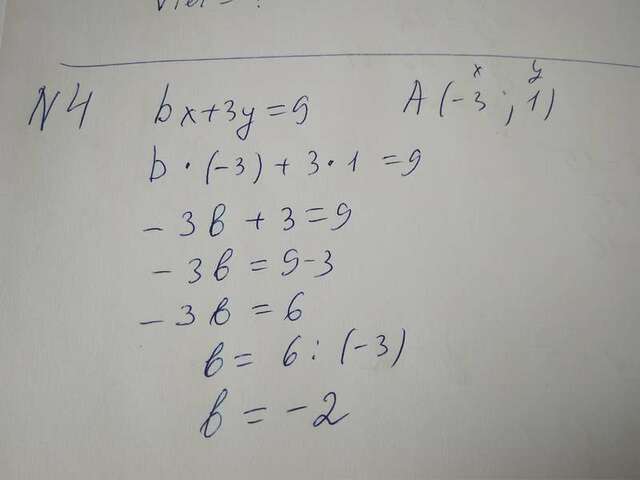 N4 bx+3y=9 A(-3;1)
x y
b·(-3)+3·1=9
-3b+3=9
-3b=9-3
-3b=6
b=6:(-3)
b=-2